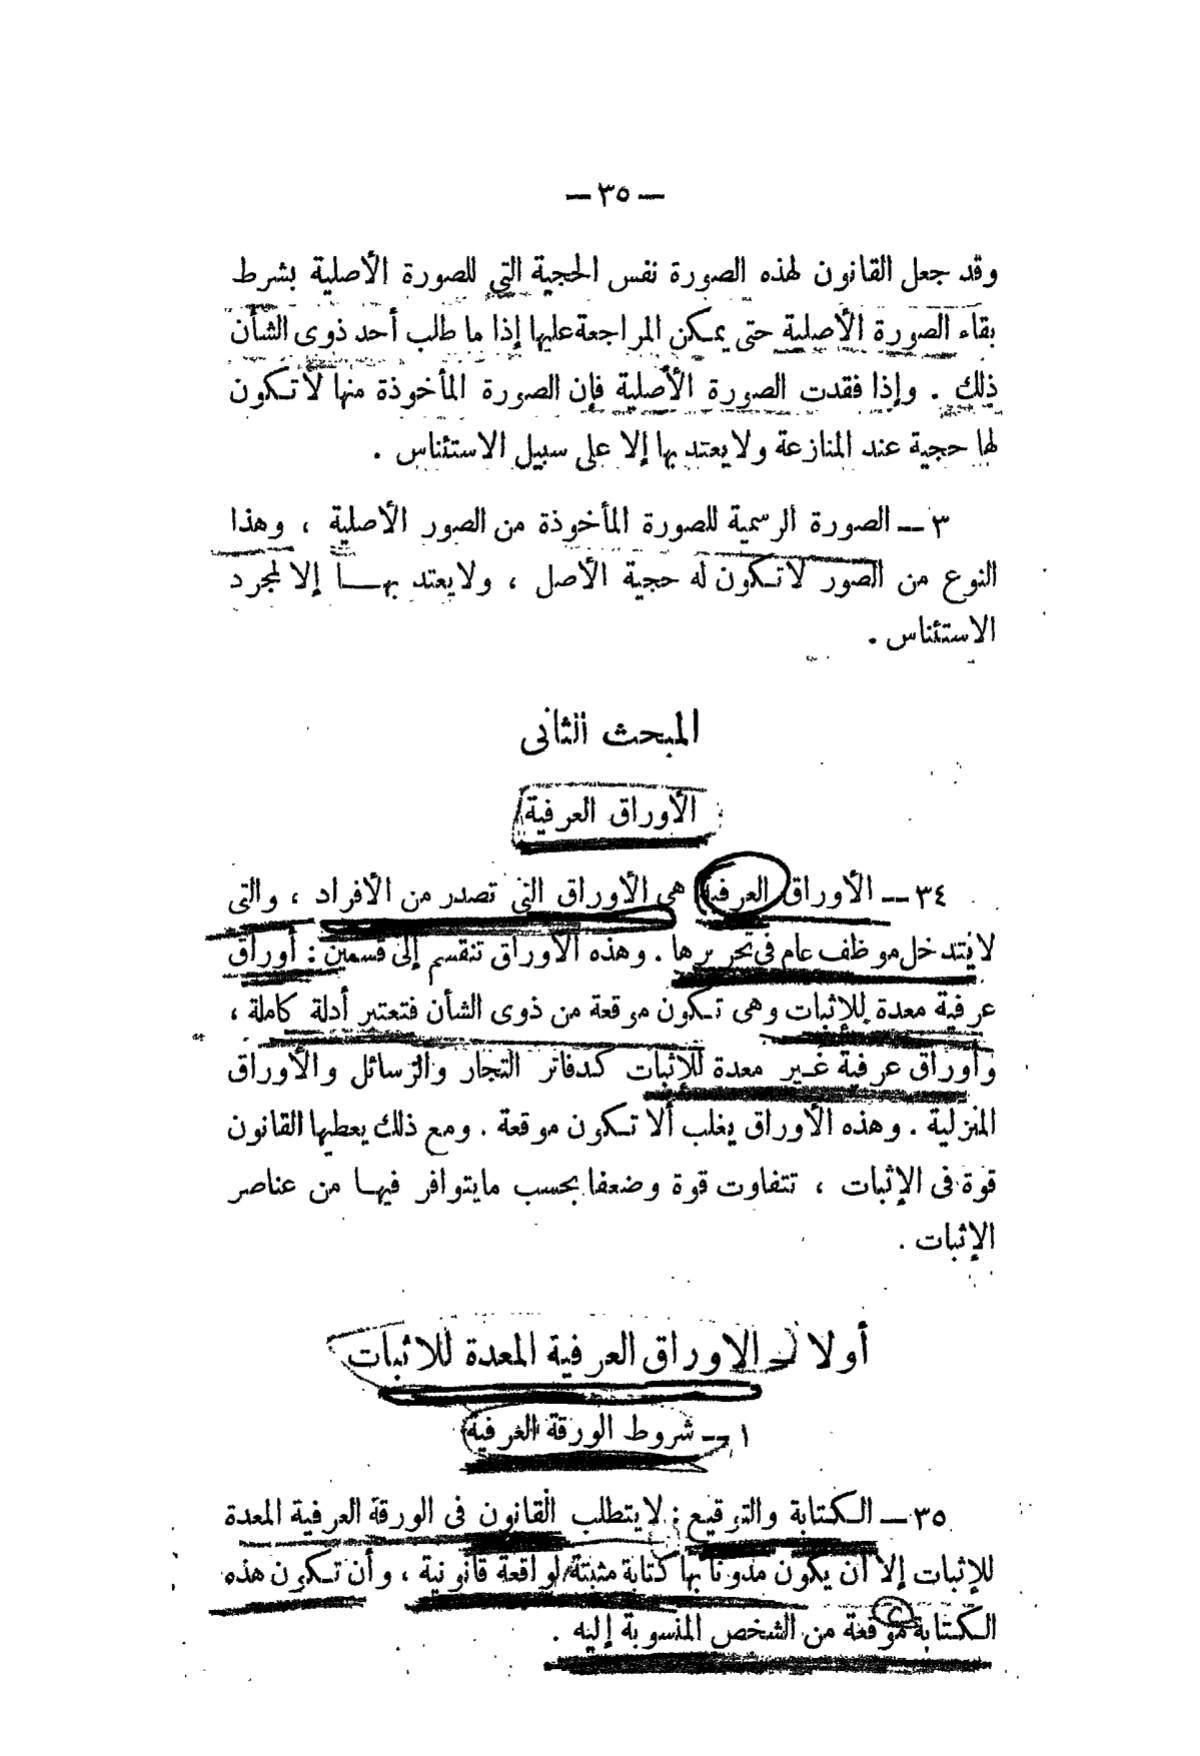 — ٣٥ —
وقد جعل القانون لهذه الصورة نفس الحجية التي للصورة الأصلية بشرط
بقاء الصورة الأصلية حتى يمكن المراجعة عليها إذا ما طلب أحد ذوى الشأن
ذلك . وإذا فقدت الصورة الأصلية فإن الصورة المأخوذة منها لا تكون
لها حجية عند المنازعة ولا يعتد بها إلا على سبيل الاستئناس .
٣ — الصورة الرسمية للصورة المأخوذة من الصور الأصلية ، وهذا
النوع من الصور لا تكون له حجية الأصل ، ولا يعتد بهــا إلا لمجرد
الاستئناس .
المبحث الثانى
الأوراق العرفية
٣٤ — الأوراق العرفية هى الأوراق التى تصدر من الأفراد ، والتى
لا يتدخل موظف عام فى تحريرها . وهذه الأوراق تنقسم إلى قسمين : أوراق
عرفية معدة للإثبات وهى تكون موقعة من ذوى الشأن فتعتبر أدلة كاملة ،
وأوراق عرفية غير معدة للإثبات كدفاتر التجار والرسائل والأوراق
المنزلية . وهذه الأوراق يغلب ألا تكون موقعة . ومع ذلك يعطيها القانون
قوة فى الإثبات ، تتفاوت قوة وضعفا بحسب ما يتوافر فيهــا من عناصر
الإثبات .
أولا — الاوراق العرفية المعدة للاثبات
١ — شروط الورقة العرفية
٣٥ — الكتابة والتوقيع : لا يتطلب القانون فى الورقة العرفية المعدة
للإثبات إلا أن يكون مدونا بها كتابة مثبتة لواقعة قانونية ، وأن تكون هذه
الكتابة موقعة من الشخص المنسوبة إليه .